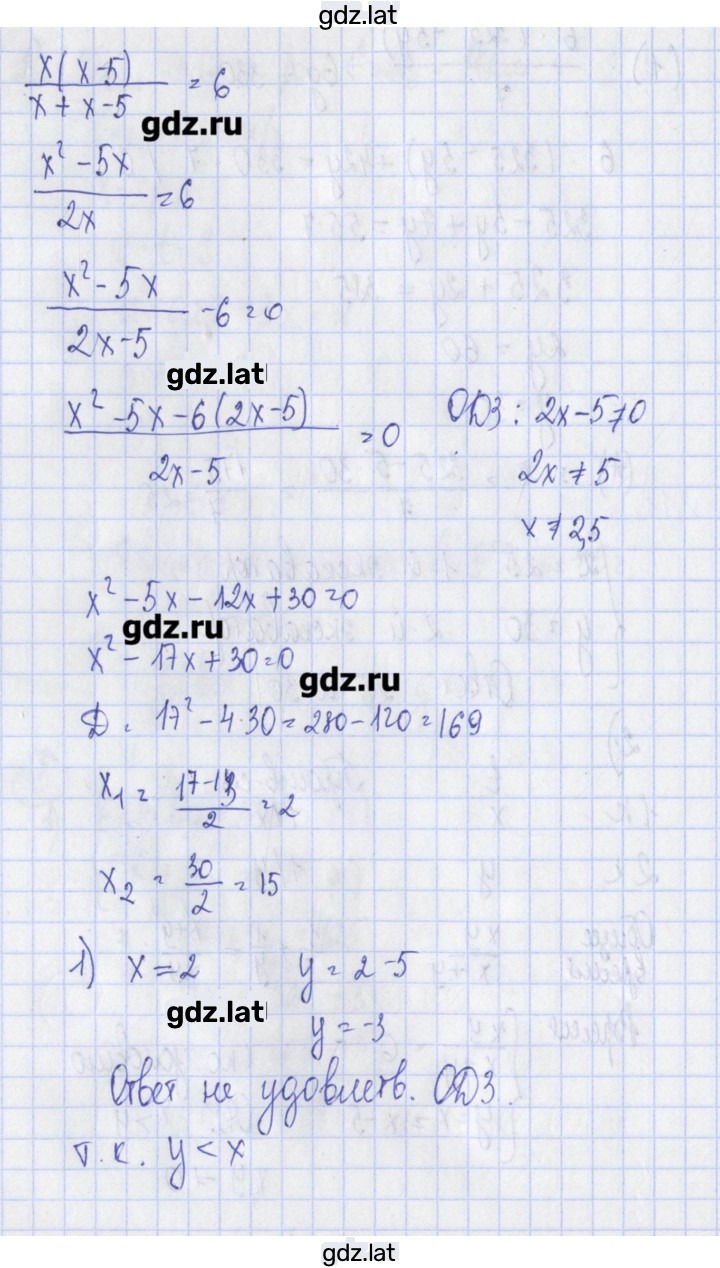 gdz.lat
x(x-5)/(x+x-5) = 6
gdz.ru
(x² - 5x)/(2x) = 6
(x² - 5x)/(2x-5) - 6 = 0
gdz.lat
(x² - 5x - 6(2x-5))/(2x-5) = 0 ОДЗ: 2x-5≠0
2x ≠ 5
x ≠ 2,5
x² - 5x - 12x + 30 = 0
gdz.ru
x² - 17x + 30 = 0
gdz.ru
D = 17² - 4·30 = 280 - 120 = 169
x₁ = (17-13)/2 = 2
x₂ = 30/2 = 15
1) x = 2 y = 2-5
gdz.lat
y = -3
Ответ не удовлетв. ОДЗ.
т.к. y < x
gdz.lat